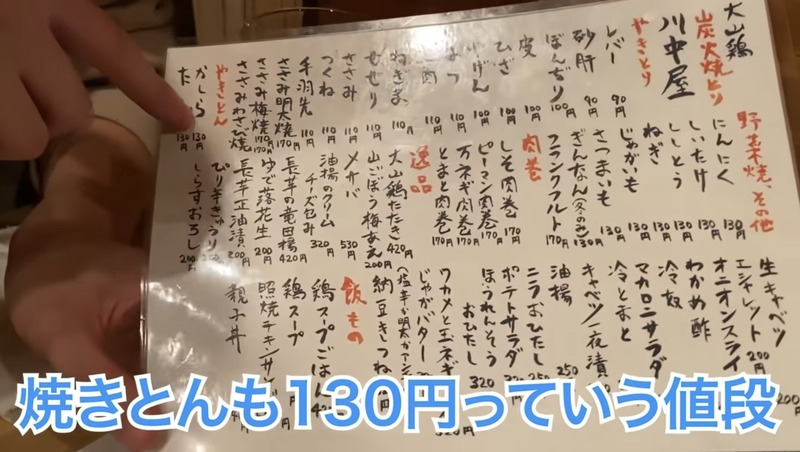 大山鶏
炭火焼とり
川中屋
やきとり
レバー 90円
砂肝 90円
ぼんぢり 100円
皮 100円
ひざ 100円
げん 100円
はつ 110円
肉 110円
ねぎま 110円
せせり 110円
ささみ 110円
つくね 110円
手羽先 110円
ささみ明太焼 170円
ささみ梅焼 170円
ささみわさび焼 170円
やきとん
かしら 130円
た 130円
野菜焼、その他
にんにく 130円
しいたけ 130円
ししとう 130円
ねぎ 130円
じゃがいも 130円
さつまいも 130円
ぎんなん(冬のみ) 130円
フランクフルト 170円
肉巻
しそ肉巻 170円
ピーマン肉巻 170円
万ネギ肉巻 170円
とまと肉巻 170円
逸品
大山鶏たたき 420円
山ごぼう梅あえ 200円
メサバ 530円
油揚のクリームチーズ包み 320円
長芋の竜田揚 420円
ゆで落花生 200円
長芋正油漬 200円
ぴり辛きゅうり 200円
しらすおろし 200円
生キャベツ
エシャレット 200円
オニオンスライ
わかめ酢
冷奴
マカロニサラダ
冷とまと
キャベツ一夜漬
油揚 250
ニラおひたし 250
ポテトサラダ 320
ほうれんそうおひたし 320
ワカメと玉ネギ
じゃがバター
納豆きつね
飯もの
鶏スープごはん
鶏スープ
照焼チキンサン
親子丼
焼きとんも130円っていう値段